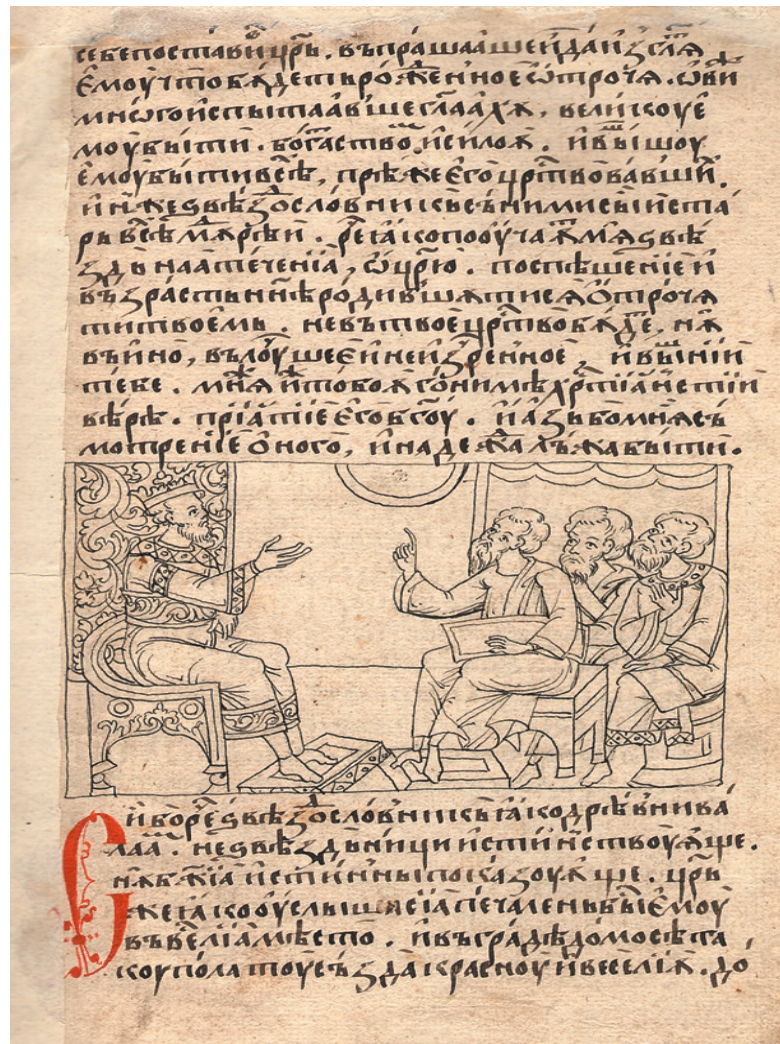 себепостави црь. въпрашаашейдаизглѧ
емоучтобѫдетьрожⷣенноеѡтрочѧ. ѡвиⷤ
мнѡгоиспытаавшеглаахѫ, великоуе
моубыти. богаⷮствоⷨ, исилоѫ. ивышоу
емоубытивсѣⷯ, прѣжеегоцрⷭтвовавшиⷯ.
инѫжеѕвѣзⷣословникъсънимисыиста
рьвсѣⷯмⷣрѣи. реⷱ҇ꙗкопооучаѫⷮмѧѕвѣ
здънаатеченїа, ѡцр҃ю. поспѣшенїеи
възрастьнн҃ѣродившѫтисѧѻтрочѧ
титвоемь. невътвоецрⷭтвобѫдеⷮ, нѫ
въино, вълоучшееинеизⷣреченное, ивышнїи
тебе. мнѧ итобоѫгонимѣихрⷭтїанстїи
вѣрѣ. прїатїеегобг҃оу. иазъбомнѧсъ
мотренїеоного, инадежⷣалъжабыти.
Сиборе҇ѕвѣзⷣословникъꙗкодрѣвнива
лаа. неѕвѣздънициистинствоуѫще.
нѫбж҃їаистинныпоказоуѫще. црь
жеꙗкооуслышасїапечаленьбыⷭемоу
въвелїамѣсто. ивъградѣдомосѣта
коуполатоусъздакрасноуивеселїѫ. до